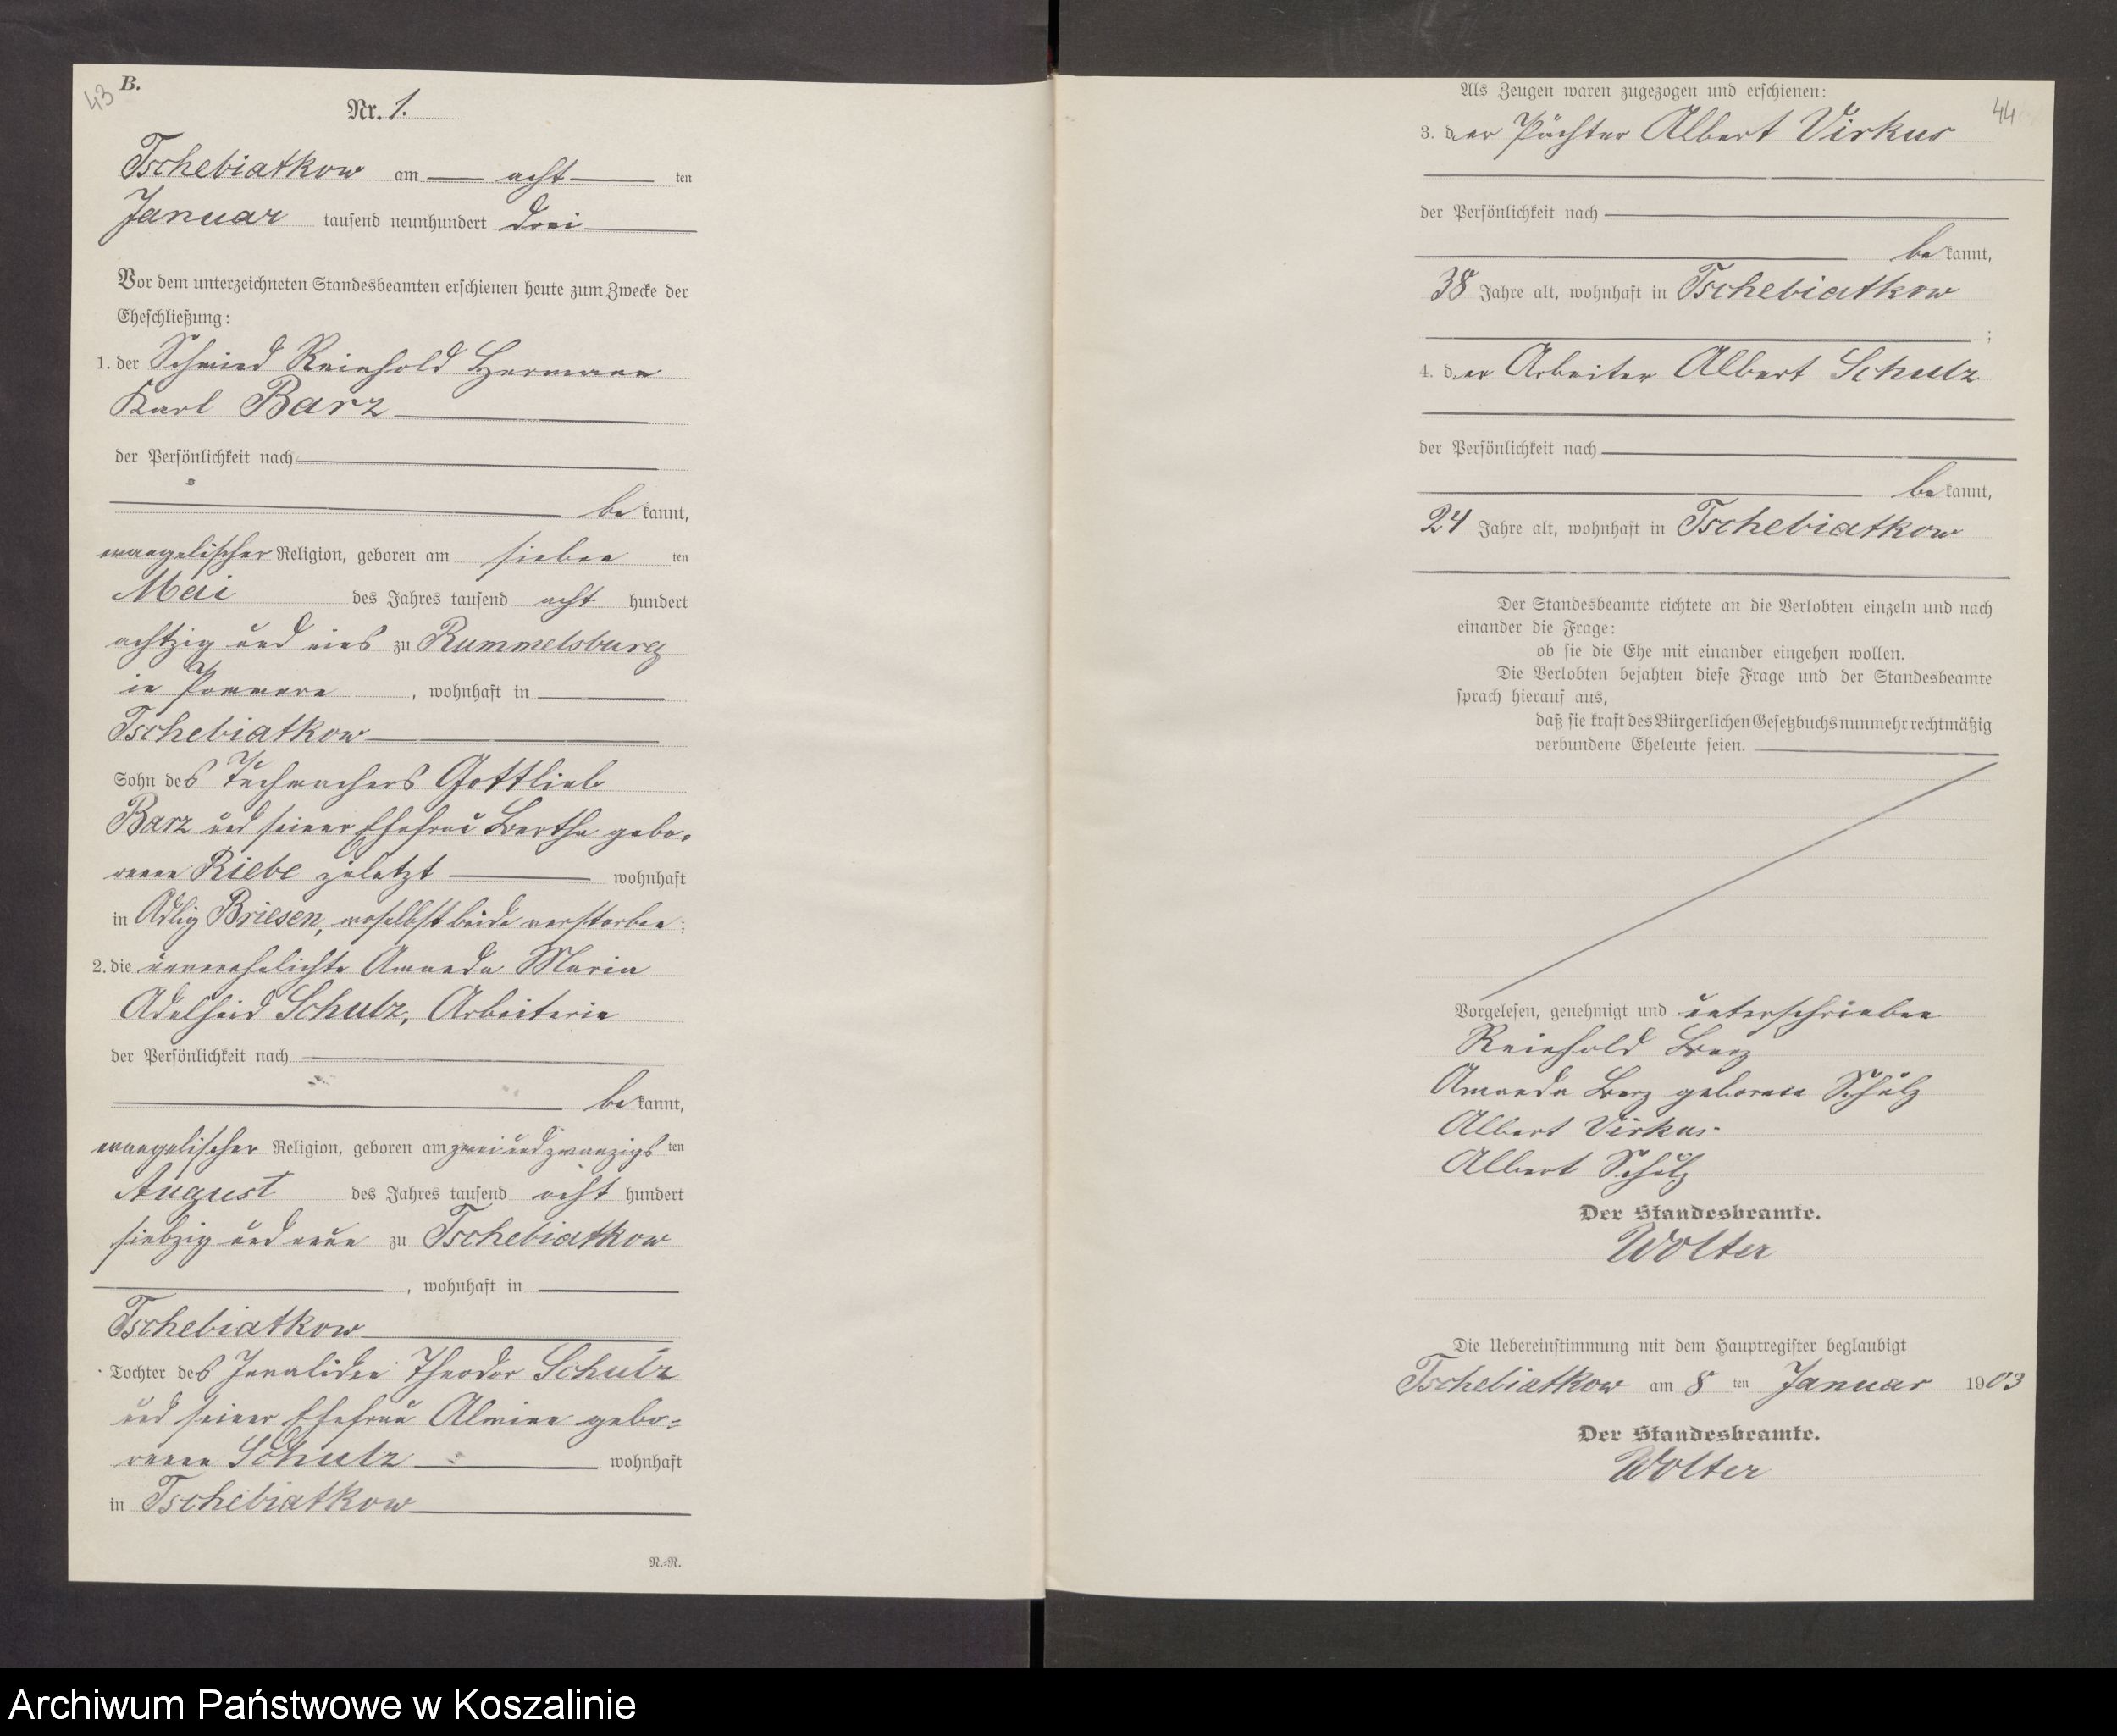 43
B.
Nr. 1.
Tschebiatkow am acht ten
Januar tausend neunhundert drei
Vor dem unterzeichneten Standesbeamten erschienen heute zum Zwecke der
Eheschließung:
1. der Schmied Reinhold Hermann
Karl Barz
der Persönlichkeit nach
be kannt,
evangelischer Religion, geboren am sieben ten
Mai des Jahres tausend acht hundert
achtzig und eins zu Rummelsburg
in Pommern , wohnhaft in
Tschebiatkow
Sohn des Tuchmachers Gottlieb
Barz und seiner Ehefrau Bertha gebo-
renen Riebe zuletzt wohnhaft
in Adlig Briesen, woselbst beide verstorben;
2. die unverehelichte Amanda Maria
Adelheid Schulz, Arbeiterin
der Persönlichkeit nach
be kannt,
evangelischer Religion, geboren am zwei und zwanzigs ten
August des Jahres tausend acht hundert
siebzig und neun zu Tschebiatkow
, wohnhaft in
Tschebiatkow
Tochter des Invaliden Theodor Schulz
und seiner Ehefrau Alwine gebo-
renen Schulz wohnhaft
in Tschebiatkow
N.-R.
44
Als Zeugen waren zugezogen und erschienen:
3. der Pächter Albert Virkus
der Persönlichkeit nach
be kannt,
38 Jahre alt, wohnhaft in Tschebiatkow
;
4. der Arbeiter Albert Schulz
der Persönlichkeit nach
be kannt,
24 Jahre alt, wohnhaft in Tschebiatkow
Der Standesbeamte richtete an die Verlobten einzeln und nach
einander die Frage:
ob sie die Ehe mit einander eingehen wollen.
Die Verlobten bejahten diese Frage und der Standesbeamte
sprach hierauf aus,
daß sie kraft des Bürgerlichen Gesetzbuchs nunmehr rechtmäßig
verbundene Eheleute seien.
Vorgelesen, genehmigt und unterschrieben
Reinhold Barz
Amanda Barz geborene Schulz
Albert Virkus
Albert Schulz
Der Standesbeamte.
Wolter
Die Uebereinstimmung mit dem Hauptregister beglaubigt
Tschebiatkow am 8 ten Januar 1903
Der Standesbeamte.
Wolter
Archiwum Państwowe w Koszalinie